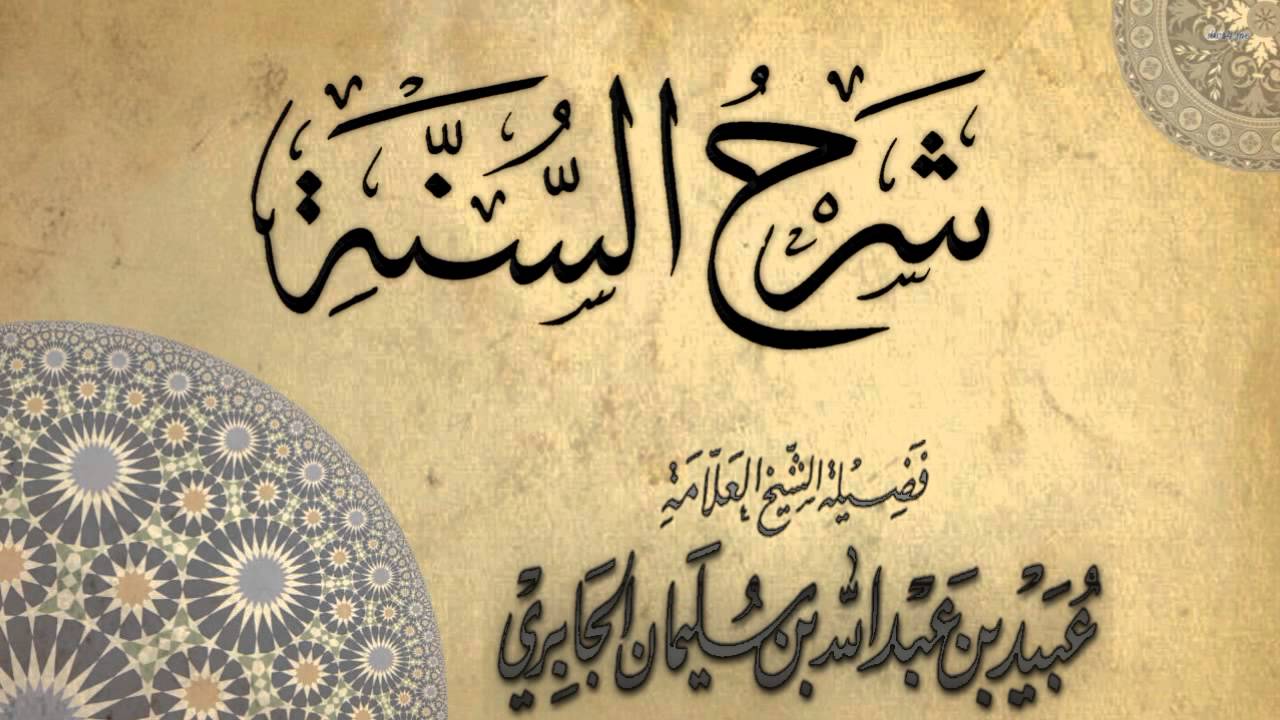 شَرْحُ السُّنَّةِ
فَضِيلَة الشَّيْخ العَلَّامَة
عُبَيْد بن عَبْد الله بن سُلَيمان الجَابِرِيْ